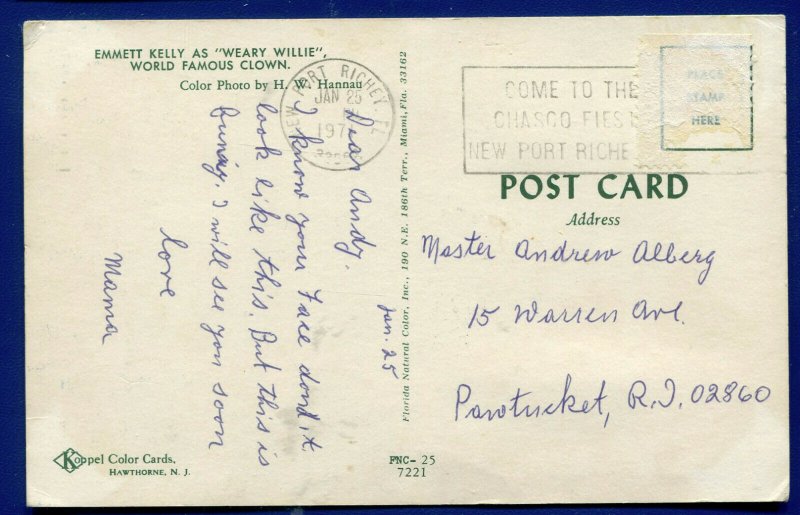 EMMETT KELLY AS "WEARY WILLIE",
WORLD FAMOUS CLOWN.
Color Photo by H. W. Hannau
NEW PORT RICHEY, FL
JAN 25
197
Jan. 25
Dear Andy.
I know your face dond it
look like this. But this is
funny. I will see you soon
love
Mama
Koppel Color Cards.
HAWTHORNE, N. J.
Florida Natural Color, Inc., 190 N.E. 186th Terr., Miami, Fla. 33162
FNC- 25
7221
COME TO THE
CHASCO FIES
NEW PORT RICHE
PLACE
STAMP
HERE
POST CARD
Address
Master Andrew Alberg
15 Warren Ave.
Pawtucket, R.I. 02860